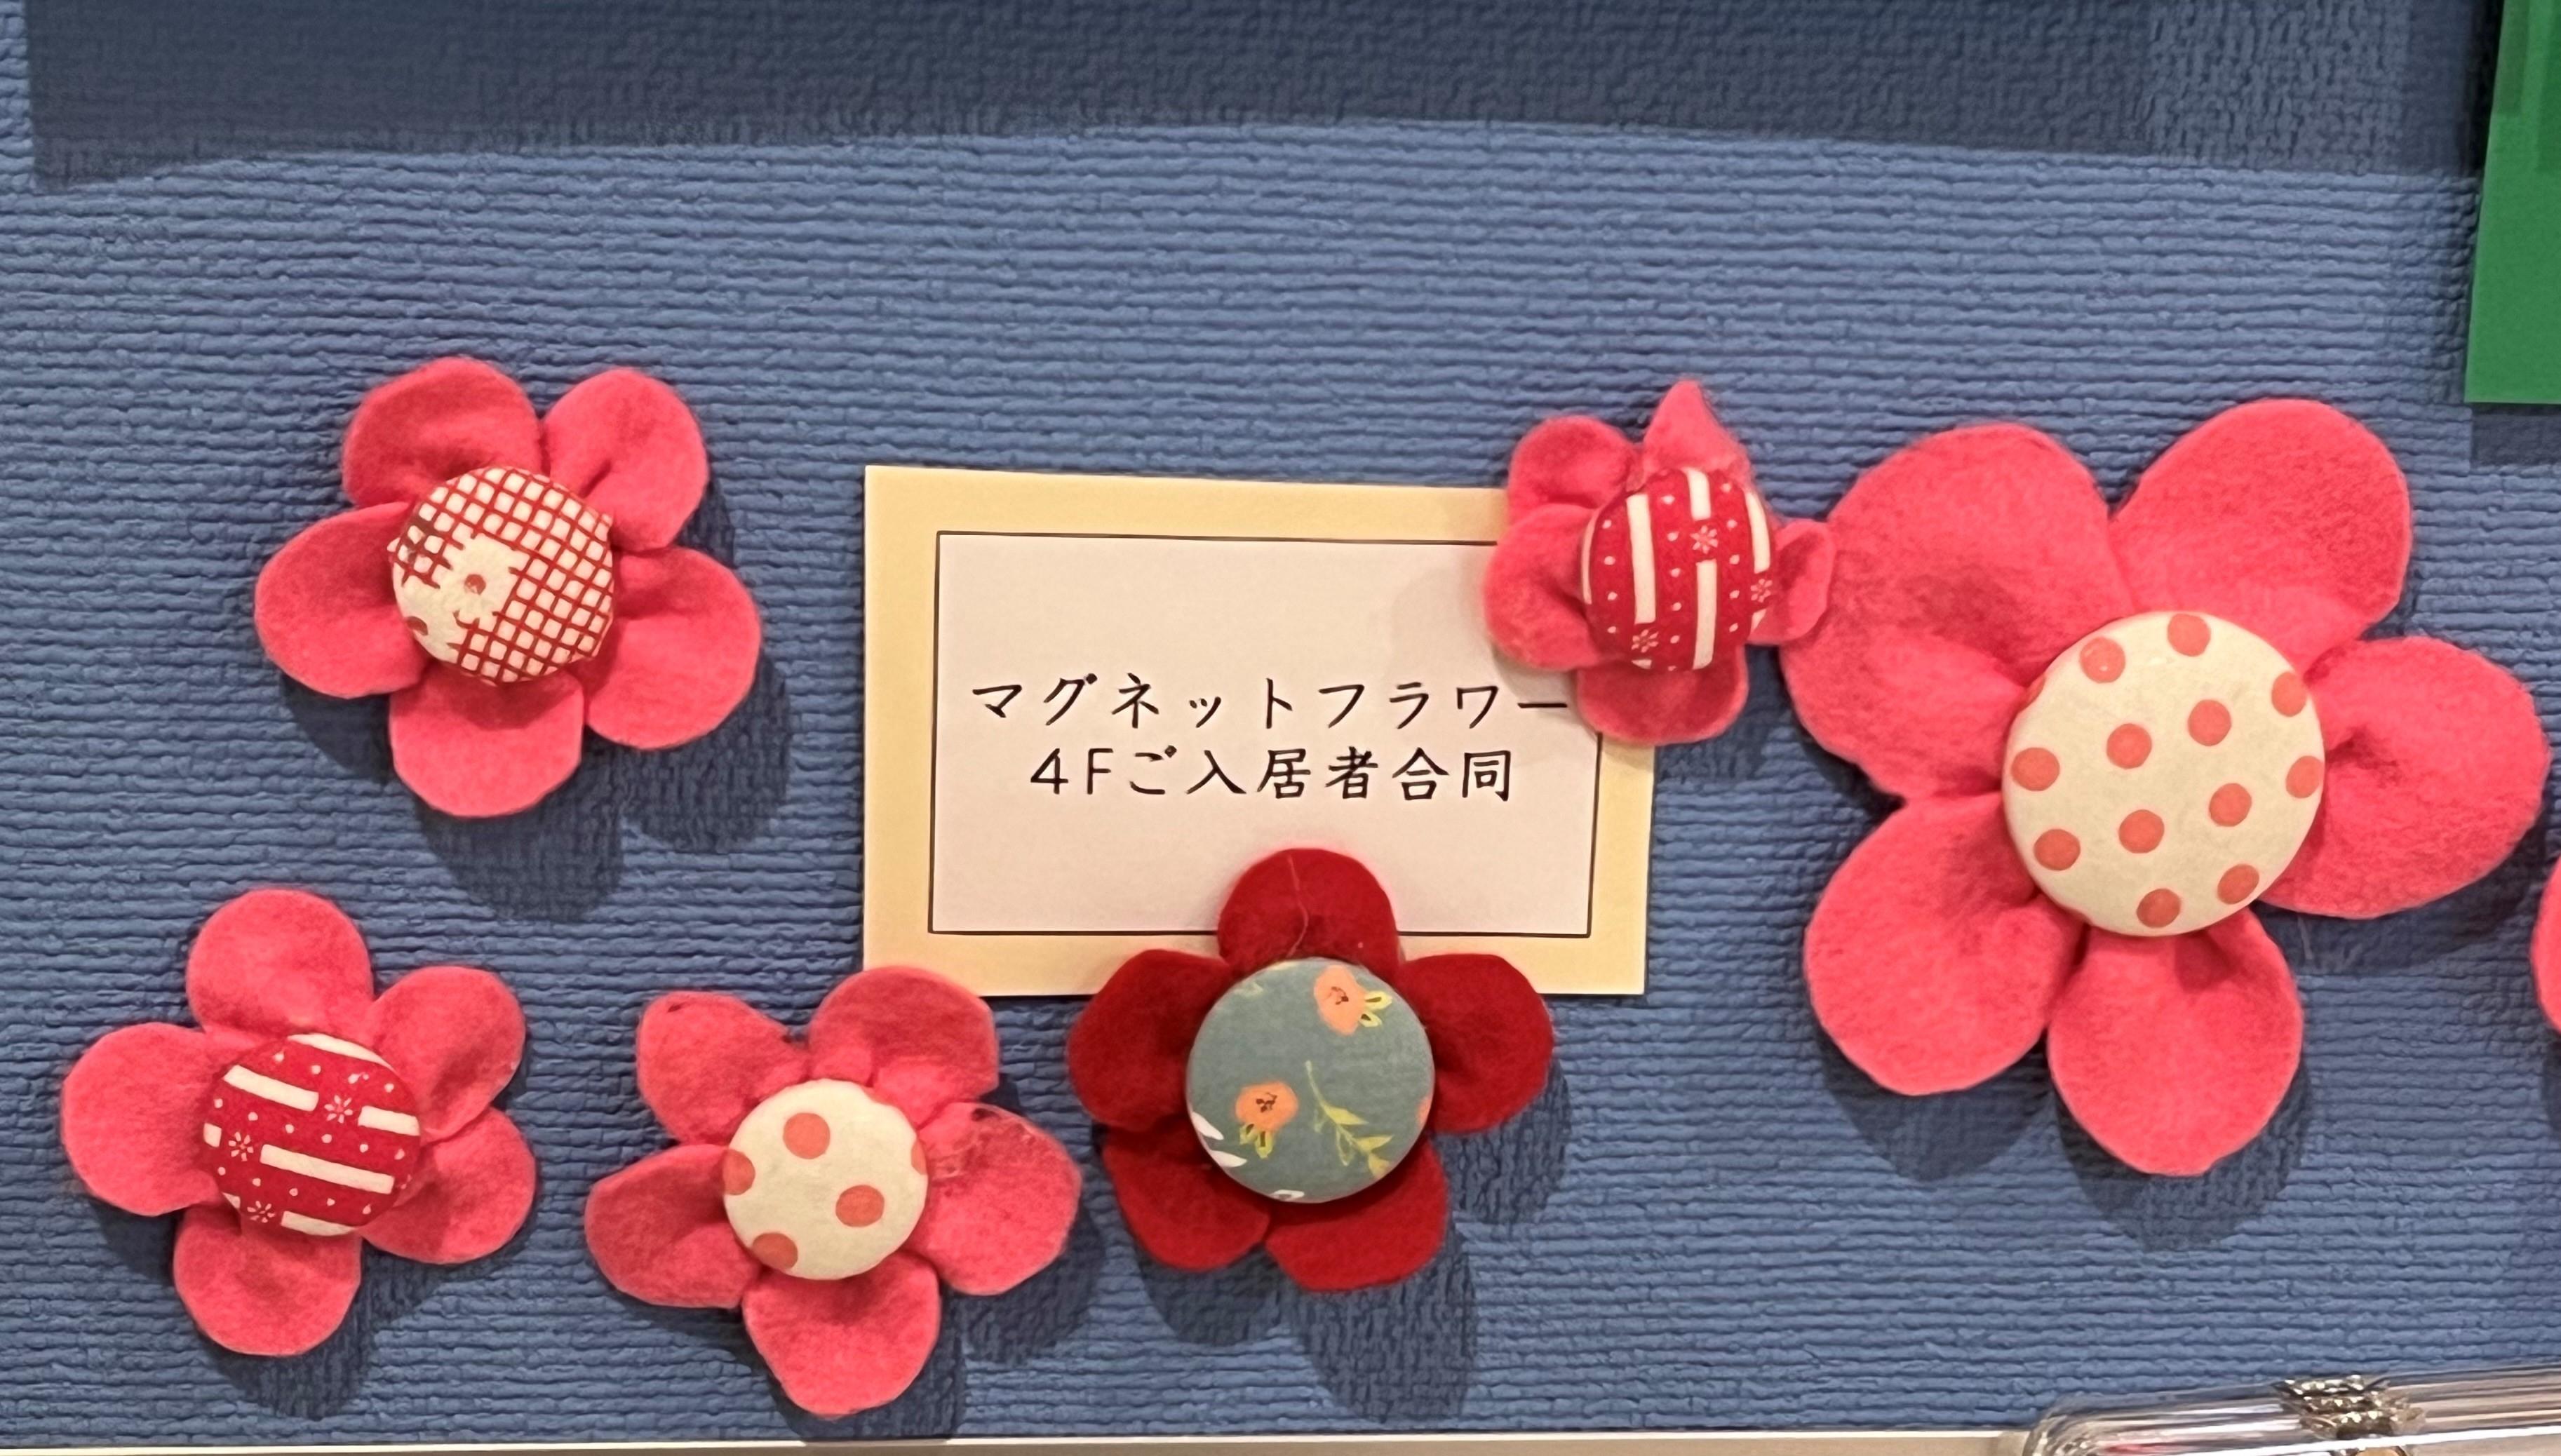 マグネットフラワー
4Fご入居者合同